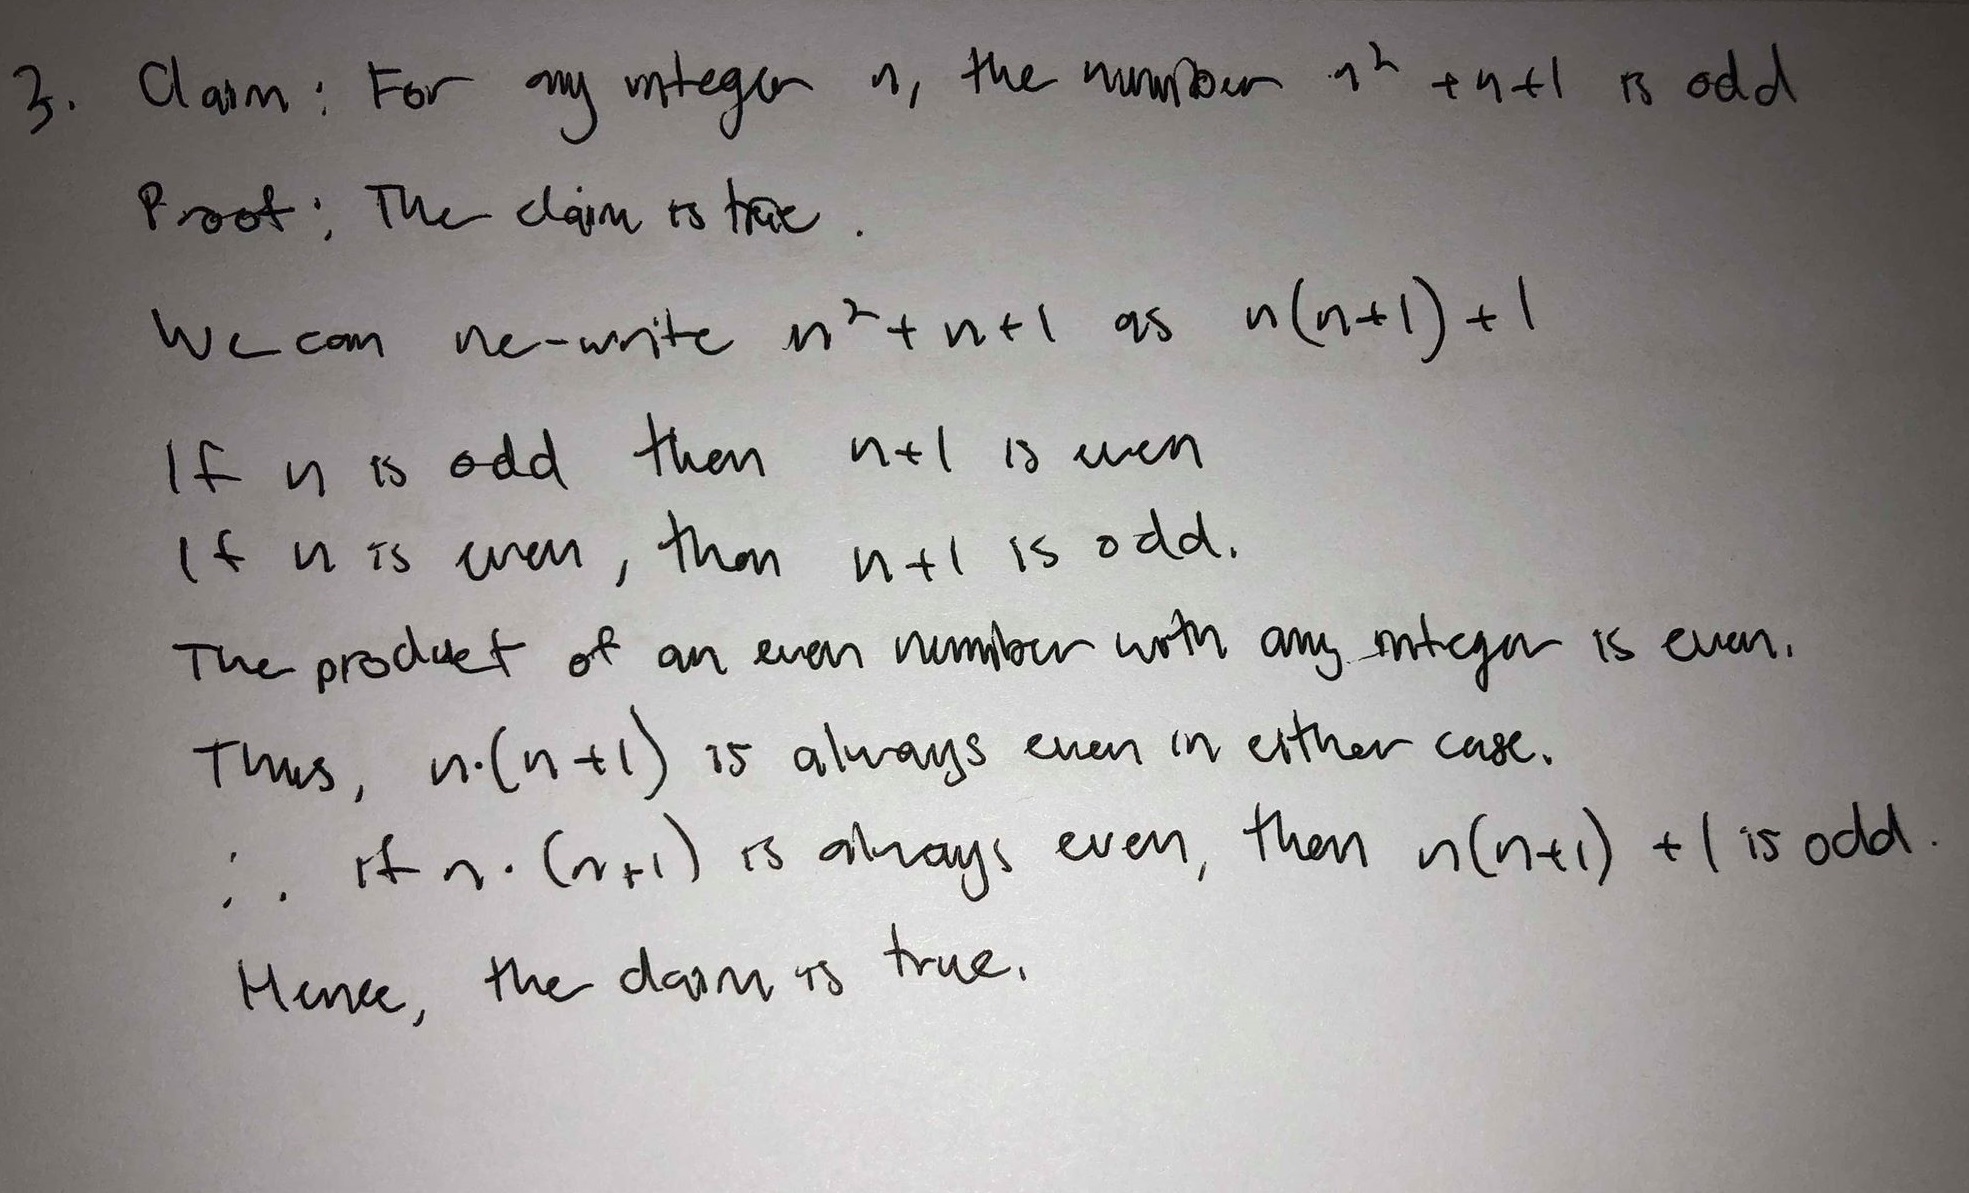 3. Claim: For any integer n, the number n² + n + 1 is odd
Proof: The claim is true.
We can re-write n² + n + 1 as n(n+1) + 1
If n is odd then n+1 is even
If n is even, then n+1 is odd.
The product of an even number with any integer is even.
Thus, n·(n+1) is always even in either case.
∴ if n·(n+1) is always even, then n(n+1) + 1 is odd.
Hence, the claim is true.